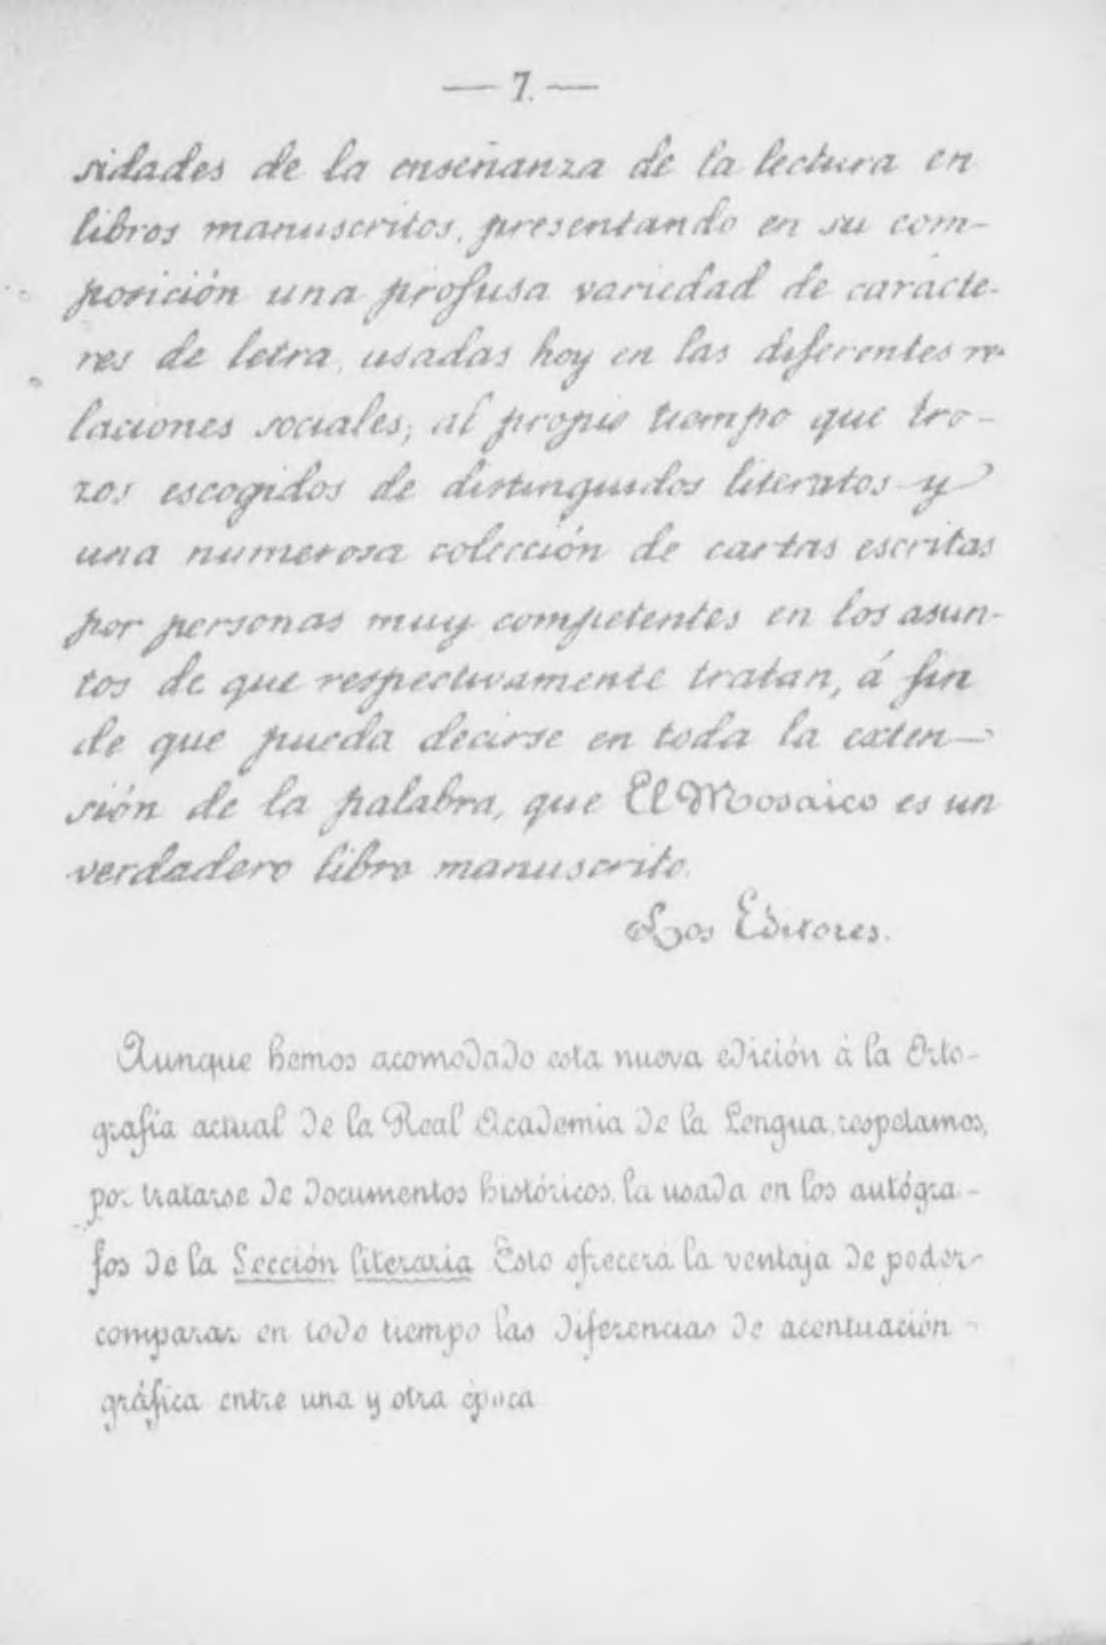 — 7. —
sidades de la enseñanza de la lectura en
libros manuscritos, presentando en su com-
posición una profusa variedad de caracte-
res de letra, usadas hoy en las diferentes re-
laciones sociales; al propio tiempo que tro-
zos escogidos de distinguidos literatos y
una numerosa colección de cartas escritas
por personas muy competentes en los asun-
tos de que respectivamente tratan, á fin
de que pueda decirse en toda la exten-
sión de la palabra, que El Mosaico es un
verdadero libro manuscrito.
Los Editores.
Aunque hemos acomodado esta nueva edición á la Orto-
grafía actual de la Real Academia de la Lengua, respetamos,
por tratarse de documentos históricos, la usada en los autógra-
fos de la Sección literaria. Esto ofrecerá la ventaja de poder
comparar en todo tiempo las diferencias de acentuación
gráfica entre una y otra época